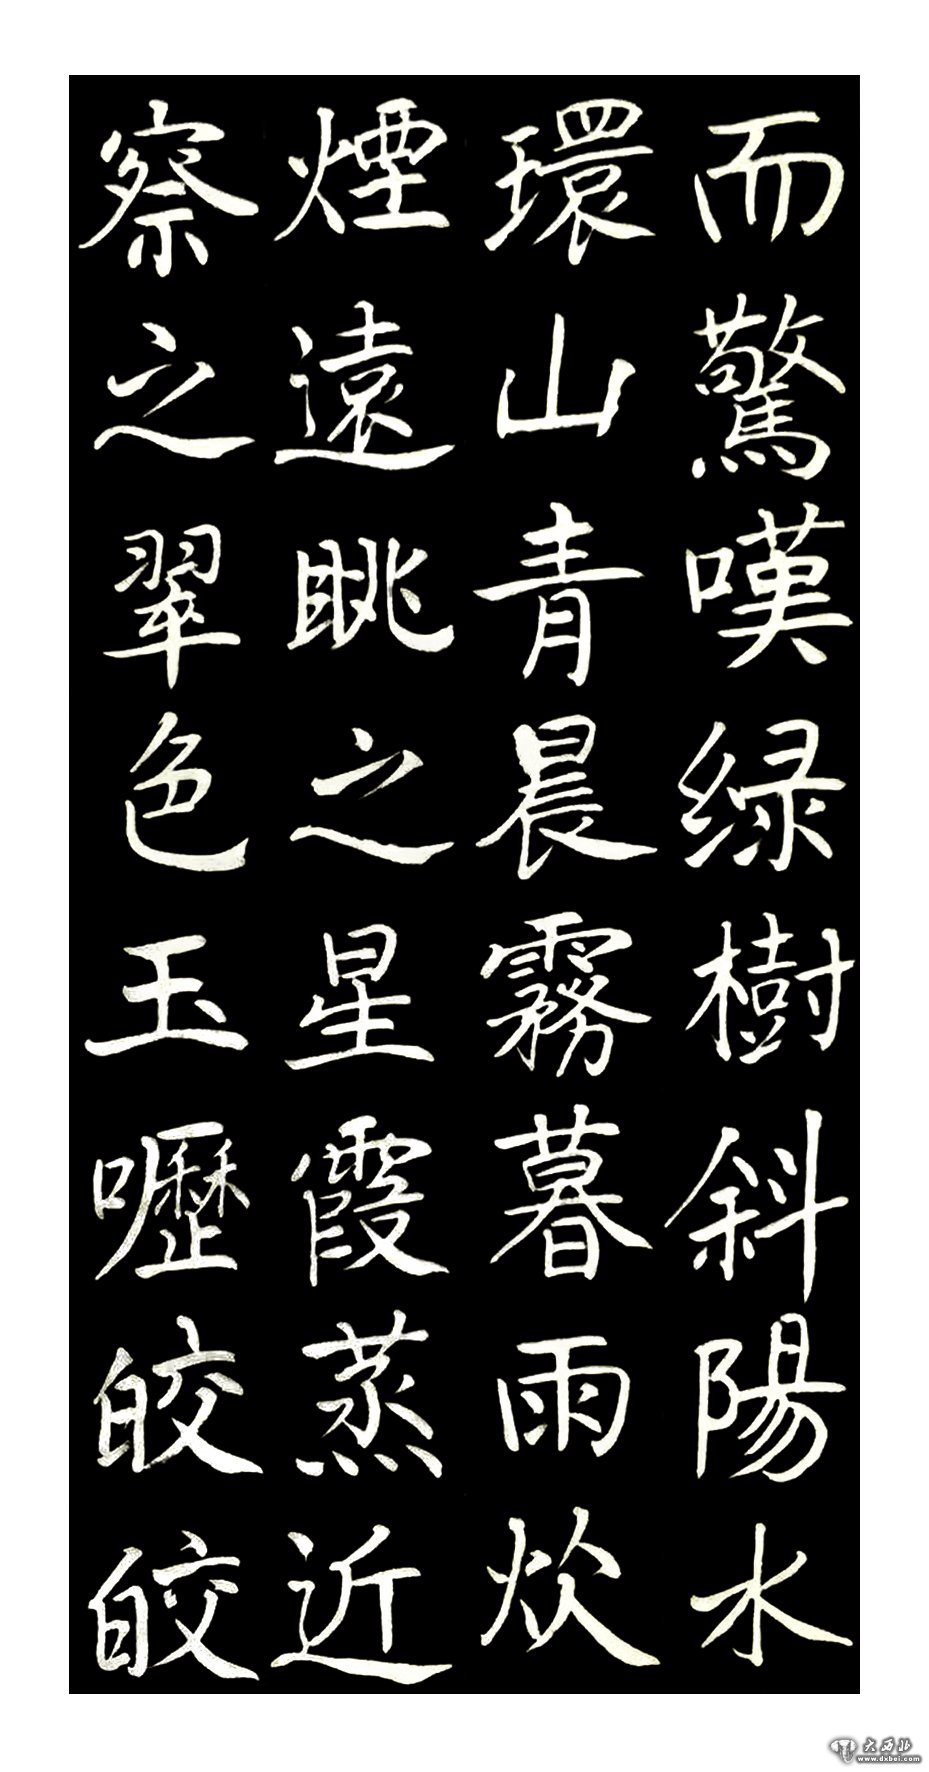 而驚嘆绿樹斜陽水
環山青晨霧暮雨炊
煙遠眺之星霞蒸近
察之翠色玉嚦皎皎
大西北
www.dxbei.com